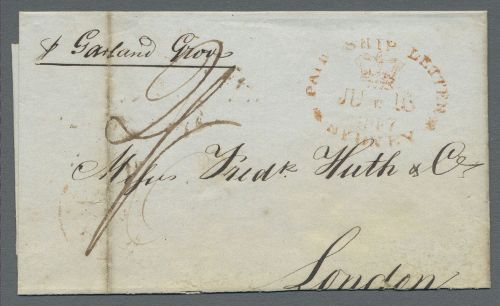 p Garland Grove
PAID SHIP LETTER
JU 18
SYDNEY
Messrs Fredk Huth & Co
London